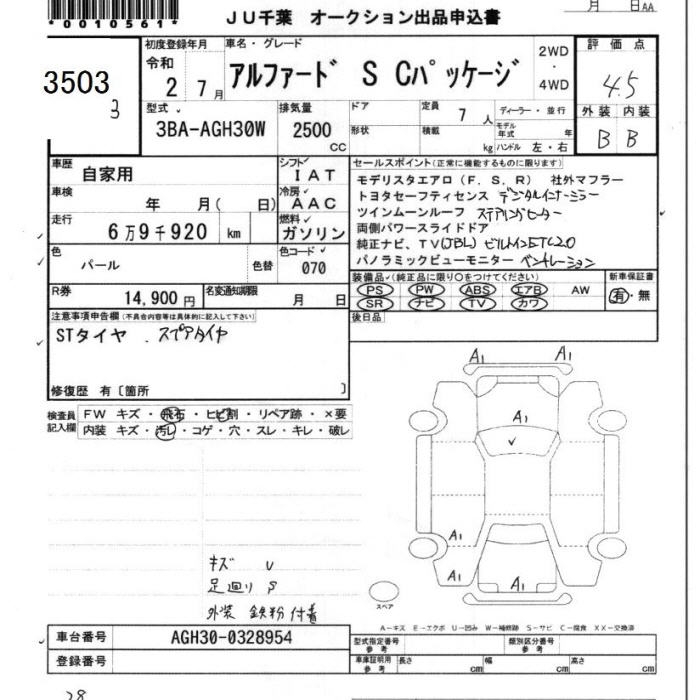 *0010561*
JU千葉 オークション出品申込書
月 日AA
3503
3
初度登録年月
令和
2 7月
車名・グレード
アルファード S Cパッケージ
2WD
・
4WD
評価点
4.5
外装 内装
B B
型式
3BA-AGH30W
排気量
2500
cc
ドア
形状
定員
7 人
積載
kg
ディーラー・並行
モデル年式 年
ハンドル 左・右
車歴
自家用
車検
年 月( 日)
走行
6万9千920 km
シフト
IAT
冷房
AAC
燃料
ガソリン
色
パール
色替
色コード
070
R券
14,900 円
名変通知期限
月 日
セールスポイント(正常に機能するものに限ります)
モデリスタエアロ(F.S.R) 社外マフラー
トヨタセーフティセンス デジタルインナーミラー
ツインムーンルーフ ステアリングヒーター
両側パワースライドドア
純正ナビ、TV(JBL) ビルトインETC2.0
パノラミックビューモニター ベンチレーション
装備品(純正品に限り○をつけてください)
PS PW ABS エアB AW
SR ナビ TV カワ
新車保証書
有・無
後日品
注意事項申告欄(不具合内容等は具体的に記入して下さい)
STタイヤ . スペアタイヤ
修復歴 有〔箇所 〕
検査員
記入欄
FW キズ・飛石・ヒビ割・リペア跡・×要
内装 キズ・汚れ・コゲ・穴・スレ・キレ・破レ
A1 A1
A1
A1
A1
A1
キズ U
足廻り S
外装 鉄粉付着
スペア
A-キズ E-エクボ U-凹み W-補修跡 S-サビ C-腐食 XX-交換済
車台番号
AGH30-0328954
登録番号
型式指定番号
参考
類別区分番号
参考
車庫証明用
参考
長さ cm
幅 cm
高さ cm
28